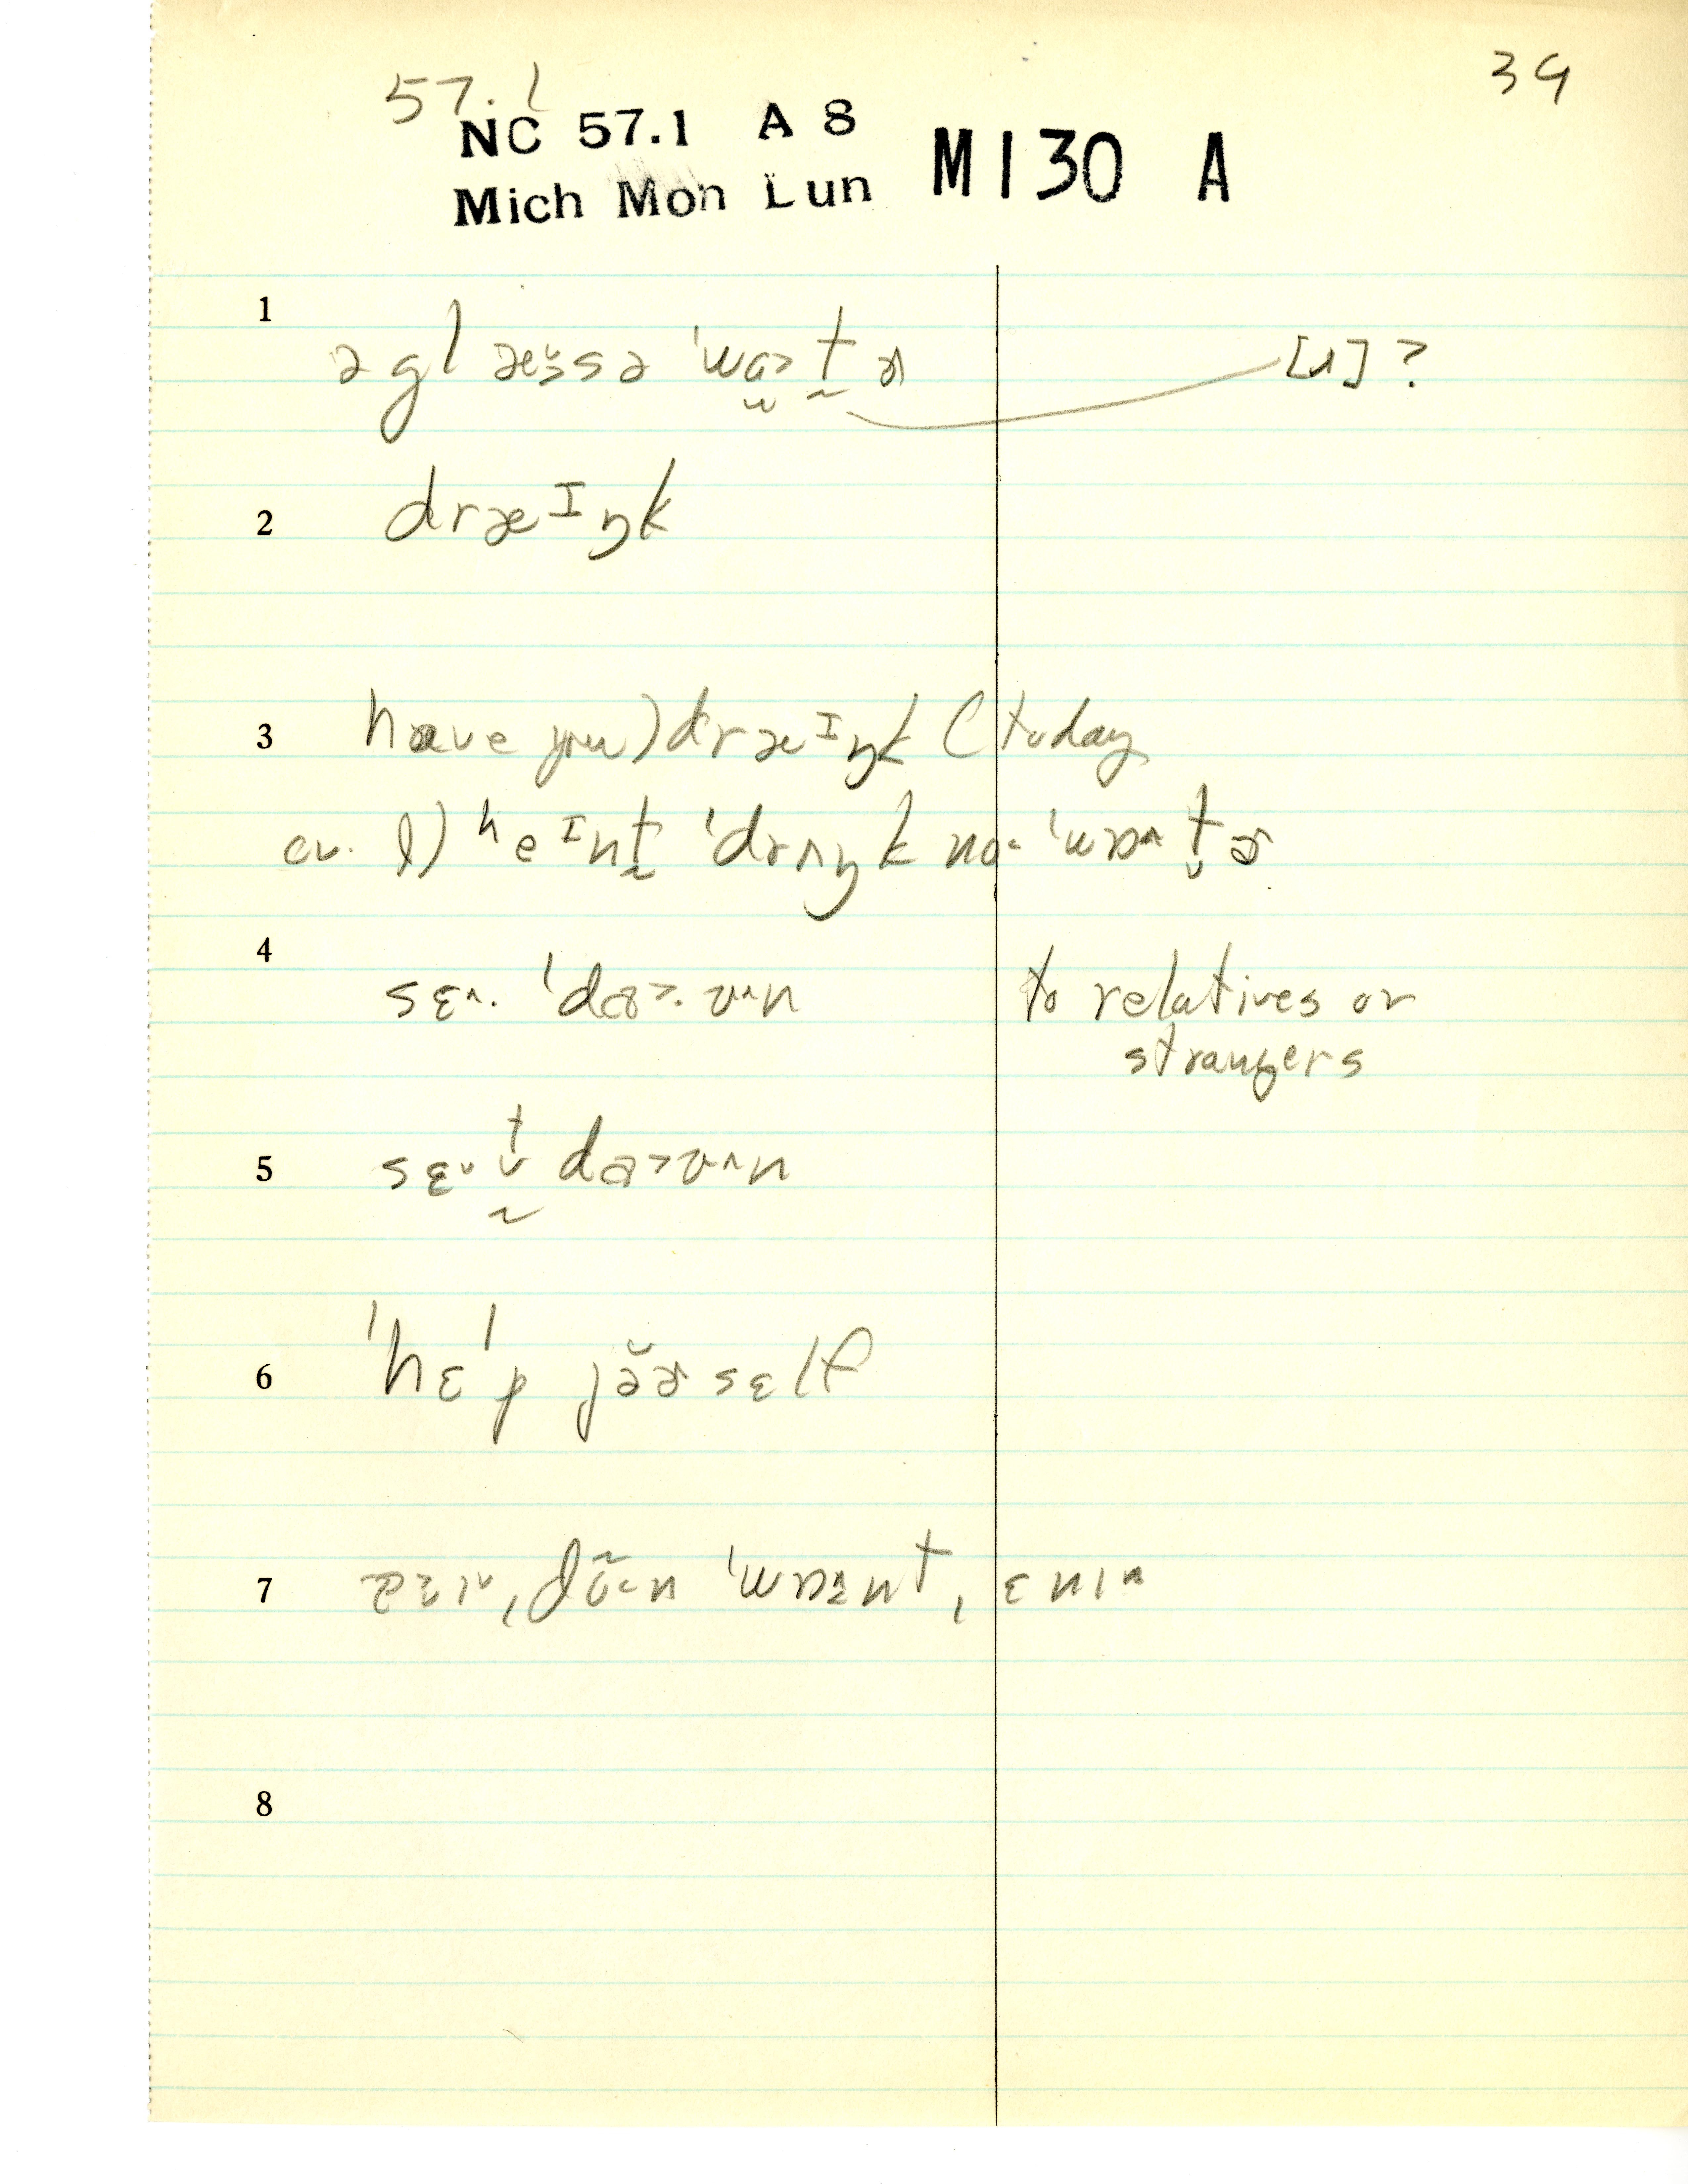 57.1
39
NC 57.1 A 8
Mich Mon Lun M130 A
1 ə glæ̆ɛsə ˈwɑ˃t̬ɚ [ɹ] ?
2 dræɪŋk
3 have you) dræɪŋk (today
cv. l) ʰeɪnt̬ ˈdrʌŋk no· ˈwɒ^t̬ɚ
4 sɛ^· ˈdɑ˃·ʊ^n to relatives or
strangers
5 sɛ˅t̬ dɑ˃ʊ^n
6 ˈhɛˈp jə̆ɚsɛlf
7 ˈwɒnt, ɛnɪ^
8